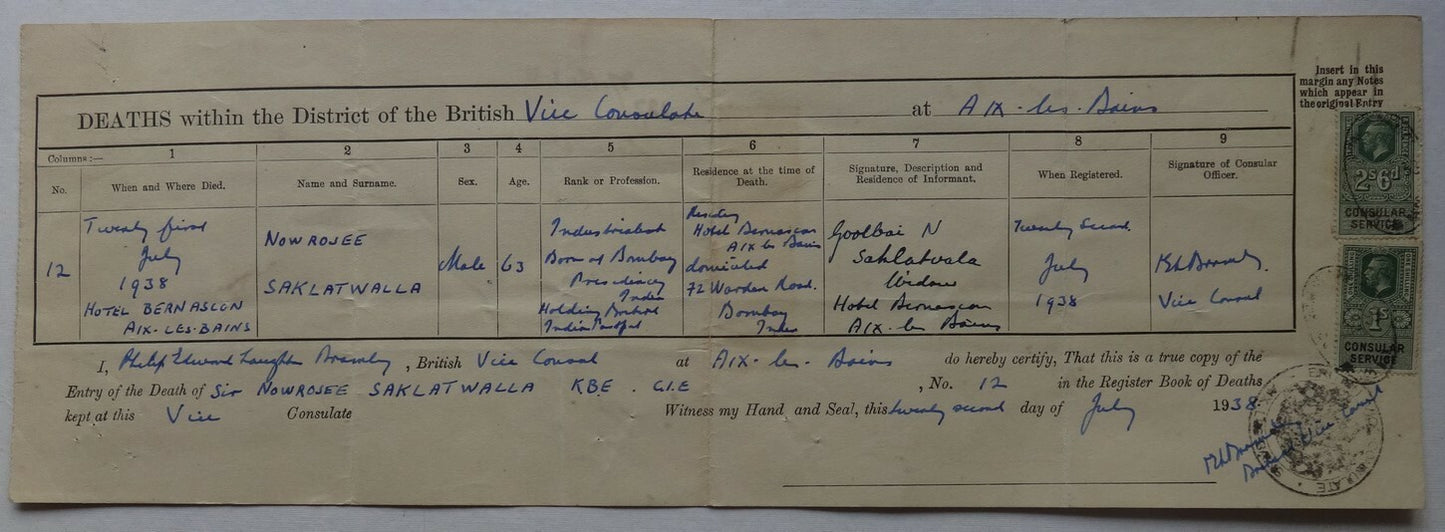 Insert in this
margin any Notes
which appear in
the original Entry
DEATHS within the District of the British Vice Consulate at Aix-les-Bains
Columns:— 1 2 3 4 5 6 7 8 9
No. When and Where Died. Name and Surname. Sex. Age. Rank or Profession. Residence at the time of Death. Signature, Description and Residence of Informant. When Registered. Signature of Consular Officer.
12
Twenty first
July
1938
HOTEL BERNASCON
AIX-LES-BAINS
NOWROJEE
SAKLATWALLA
Male
63
Industrialist
Born at Bombay
Presidency
India
Holding British
Indian Passport
Hotel Bernascon
Aix les Bains
domiciled
72 Warden Road.
Bombay
India
Goolbai N
Saklatvala
Widow
Hotel Bernascon
Aix-les Bains
Twenty Second
July
1938
Vice Consul
I, Philip Edward Bramley, British Vice Consul at Aix-les-Bains do hereby certify, That this is a true copy of the
Entry of the Death of Sir NOWROJEE SAKLATWALLA KBE. C.I.E, No. 12 in the Register Book of Deaths
kept at this Vice Consulate Witness my Hand and Seal, this twenty second day of July 1938.
British Vice Consul
2s6d
CONSULAR
SERVICE
1s
CONSULAR
SERVICE